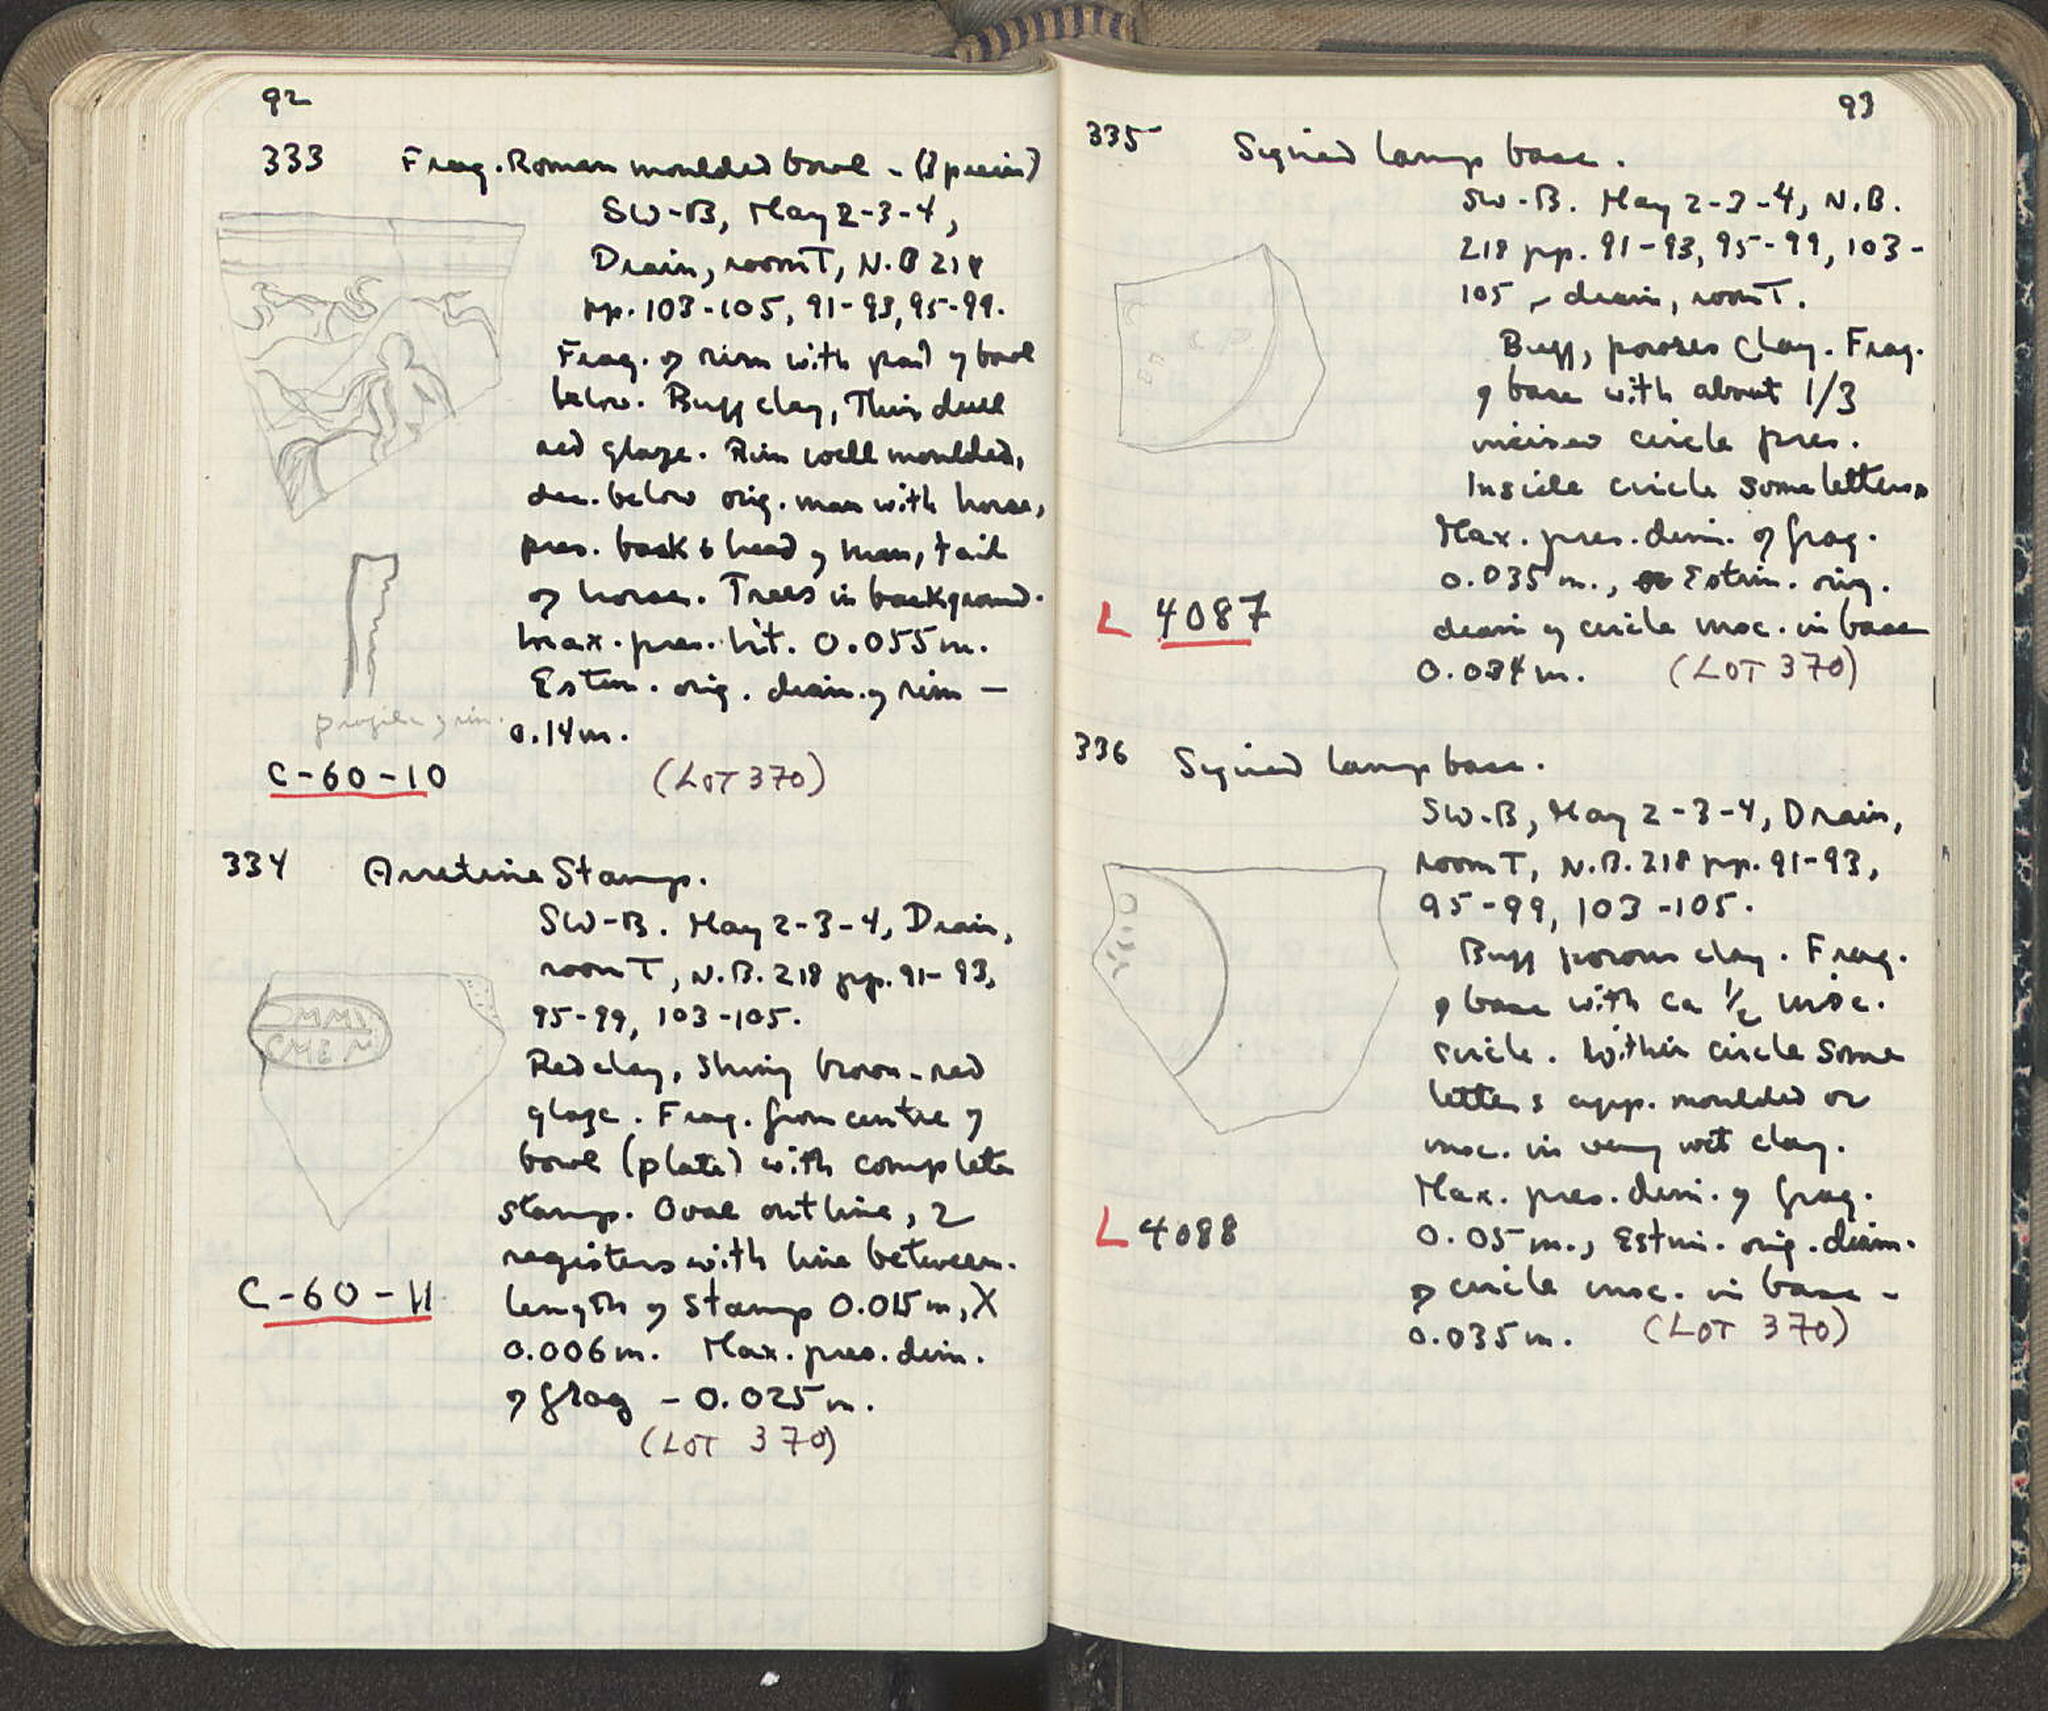 92
333 Frag. Roman moulded bowl - (3 pieces)
SW-B, May 2-3-4,
Drain, room T, N.B 218
pp. 103-105, 91-93, 95-99.
Frag. of rim with part of bowl
below. Buff clay, Thin dull
red glaze. Rim well moulded,
dec. below orig. man with horse,
pres. back & head of man, tail
of horse. Trees in background.
Max. pres. ht. 0.055 m.
Estim. orig. diam. of rim —
0.14 m.
profile of rim.
C-60-10 (LOT 370)
334 Arretine Stamp.
SW-B. May 2-3-4, Drain,
room T, N.B. 218 pp. 91-93,
95-99, 103-105.
Red clay, shiny brown-red
glaze. Frag. from centre of
bowl (plate) with complete
stamp. Oval outline, 2
registers with line between.
Length of stamp 0.015 m, X
0.006 m. Max. pres. dim.
of frag - 0.025 m.
C-60-11
(LOT 370)
93
335 Signed lamp base.
SW-B. May 2-3-4, N.B.
218 pp. 91-93, 95-99, 103-
105 - drain, room T.
Buff, porous clay. Frag.
of base with about 1/3
incised circle pres.
Inside circle some letters
Max. pres. dim. of frag.
0.035 m., Estim. orig.
diam of circle inc. in base
0.034 m. (LOT 370)
L 4087
336 Signed lamp base.
SW-B, May 2-3-4, Drain,
room T, N.B. 218 pp. 91-93,
95-99, 103-105.
Buff porous clay. Frag.
of base with ca 1/2 inc.
circle. Within circle some
letters app. moulded or
inc. in very wet clay.
Max. pres. dim. of frag.
0.05 m., Estim. orig. diam.
of circle inc. in base -
0.035 m. (LOT 370)
L 4088